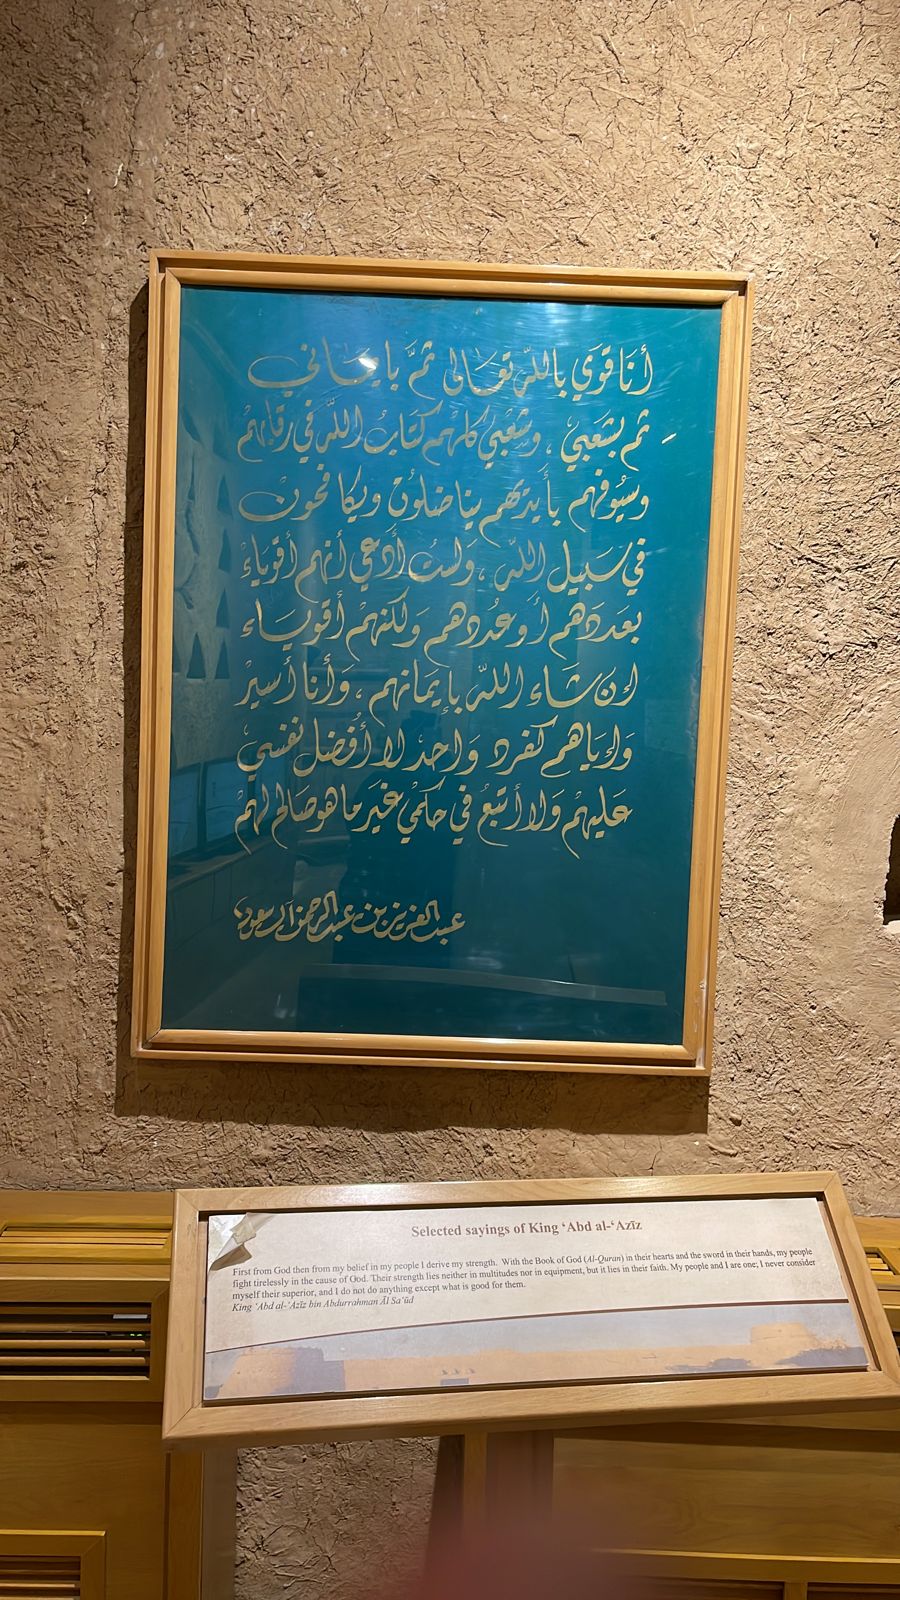 أنا قوي بالله تعالى ثم بإيماني
ثم بشعبي، وشعبي كلهم كتاب الله في رقابهم
وسيوفهم بأيديهم يناضلون ويكافحون
في سبيل الله، ولست أدعي أنهم أقوياء
بعددهم أو عددهم ولكنهم أقوياء
إن شاء الله بإيمانهم، وأنا أسير
وإياهم كفرد واحد لا أفضل نفسي
عليهم ولا أتبع في حكمي غير ما هو صالح لهم
عبد العزيز بن عبد الرحمن آل سعود
Selected sayings of King ‘Abd al-‘Azīz
First from God then from my belief in my people I derive my strength. With the Book of God (Al-Quran) in their hearts and the sword in their hands, my people
fight tirelessly in the cause of God. Their strength lies neither in multitudes nor in equipment, but it lies in their faith. My people and I are one; I never consider
myself their superior, and I do not do anything except what is good for them.
King ‘Abd al-‘Azīz bin Abdurrahman Āl Sa‘ūd